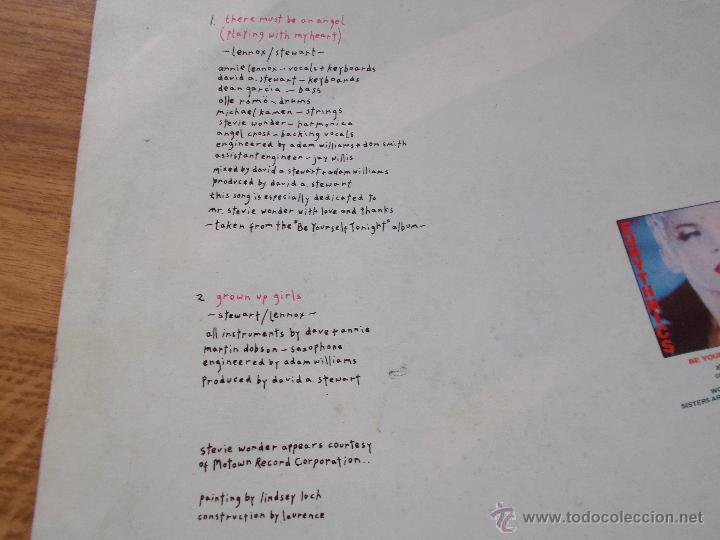 1. there must be an angel
(playing with my heart)
-lennox/stewart-
annie lennox-vocals+keyboards
david a. stewart-keyboards
dean garcia-bass
olle romö-drums
michael kamen-strings
stevie wonder-harmonica
angel cross-backing vocals
engineered by adam williams+don smith
assistant engineer-jay willis
mixed by david a. stewart+adam williams
produced by david a. stewart
this song is especially dedicated to
mr. stevie wonder with love and thanks
-taken from the "Be Yourself Tonight" album-
2. grown up girls
-stewart/lennox-
all instruments by dave+annie
martin dobson-saxophone
engineered by adam williams
produced by david a. stewart
stevie wonder appears courtesy
of Motown Record Corporation..
painting by lindsey loch
construction by laurence
EURYTHMICS
BE YOUR
SISTERS AR
www.todocoleccion.net